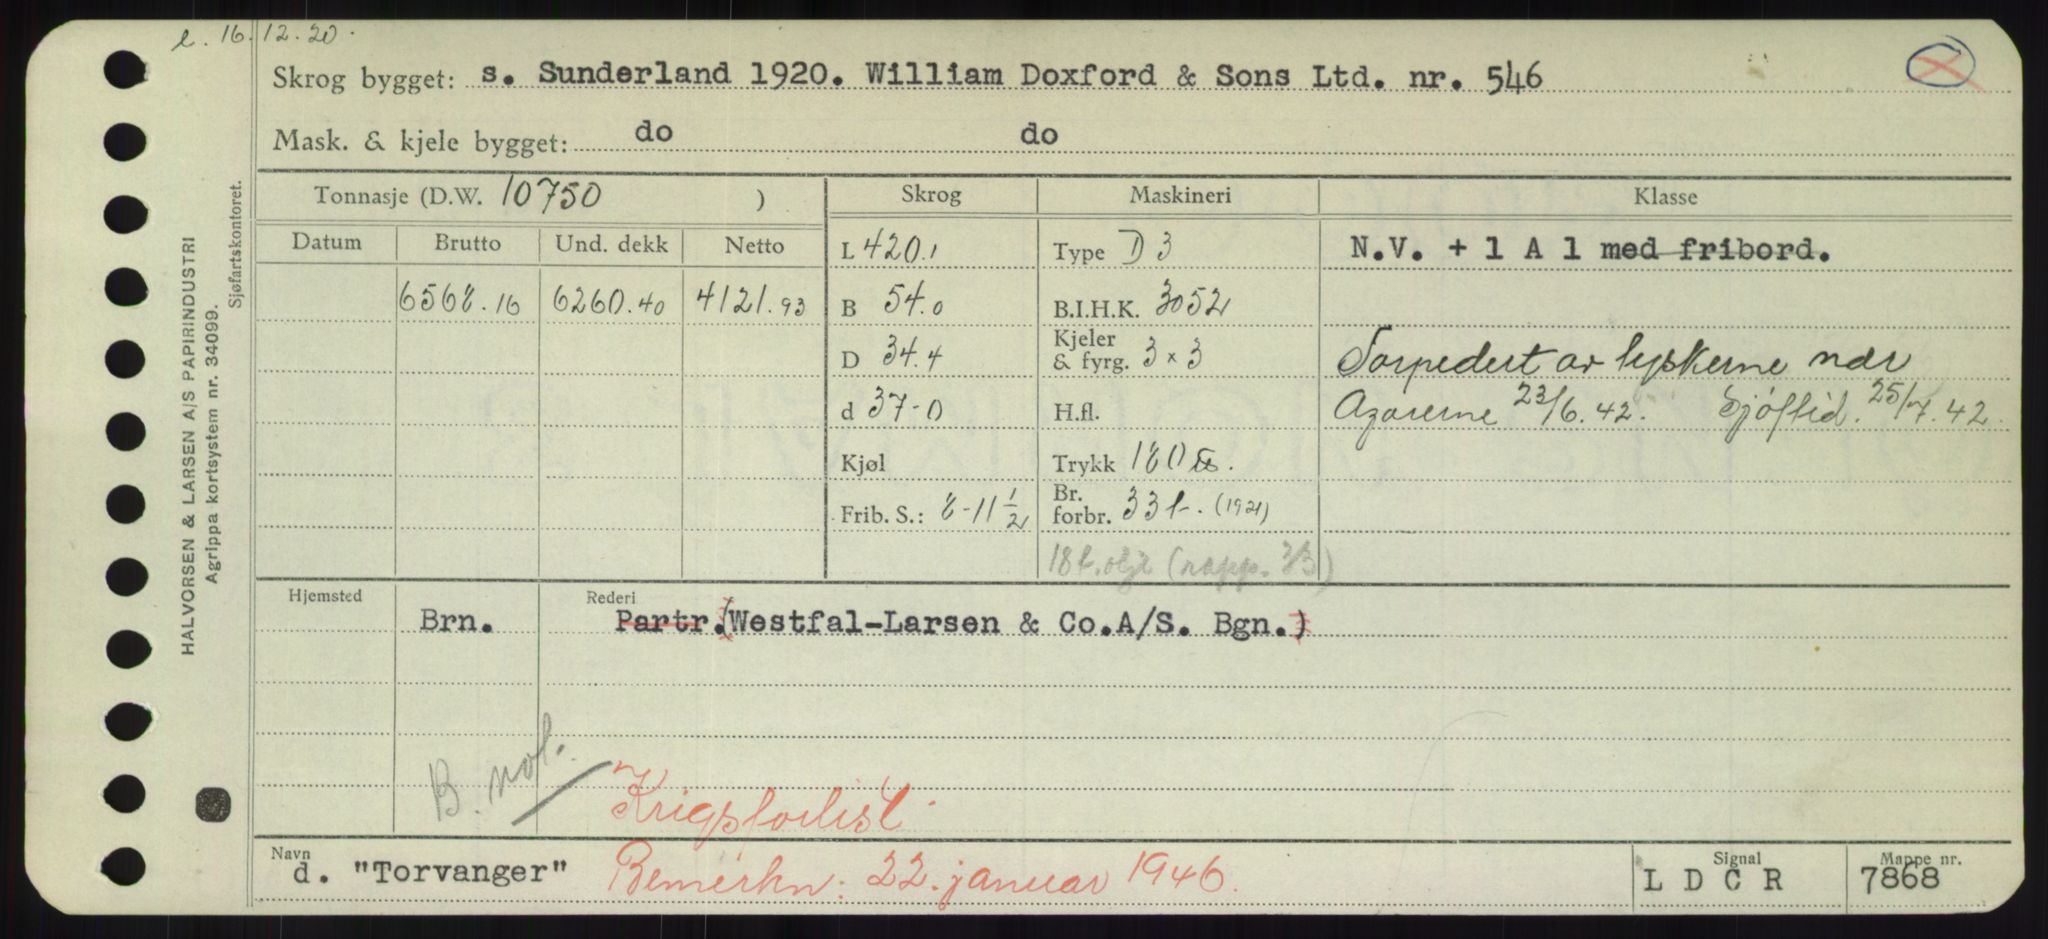 l. 16.12.20.
Skrog bygget: s. Sunderland 1920. William Doxford & Sons Ltd. nr. 546
Mask. & kjele bygget: do do
Tonnasje (D.W. 10750 ) Skrog Maskineri Klasse
Datum Brutto Und. dekk Netto L 420.1 Type D 3 N.V. + 1 A 1 med fribord.
6568.16 6260.40 4121.93 B 54.0 B.I.H.K. 3052
D 34.4 Kjeler & fyrg. 3 x 3 Torpedert av tyskerne nær
d 37-0 H.fl. Azorerne 23/6.42. Sjøftid. 25/7.42.
Kjøl Trykk 180 lbs.
Frib. S.: 8-11 1/2 Br. forbr. 33 t. (1921)
18 t. olje (rapp. 3/3)
Hjemsted Rederi
Brn. Partr. (Westfal-Larsen & Co.A/S. Bgn.)
B. not.
Krigsforlist.
Navn Signal Mappe nr.
d. "Torvanger" Bemerkn: 22. januar 1946. L D C R 7868
HALVORSEN & LARSEN A/S PAPIRINDUSTRI
Agrippa kortsystem nr. 34099.
Sjøfartskontoret.